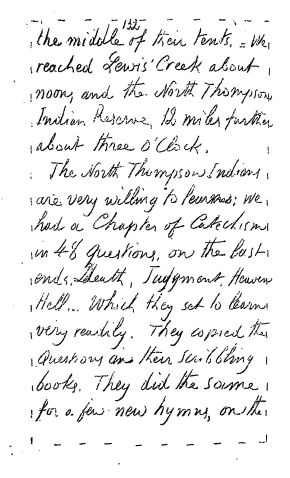 132
the middle of their tents. = We
reached Lewis' Creek about
noon, and the North Thompson
Indian Reserve, 12 miles further
about three O'Clock.
The North Thompson Indians
are very willing to learn; we
had a Chapter of Catechism
in 48 questions, on the last
ends, Death, Judgment, Heaven
Hell... Which they set to learn
very readily. They copied the
questions on their scribbling
books. They did the same
for a few new hymns, on the